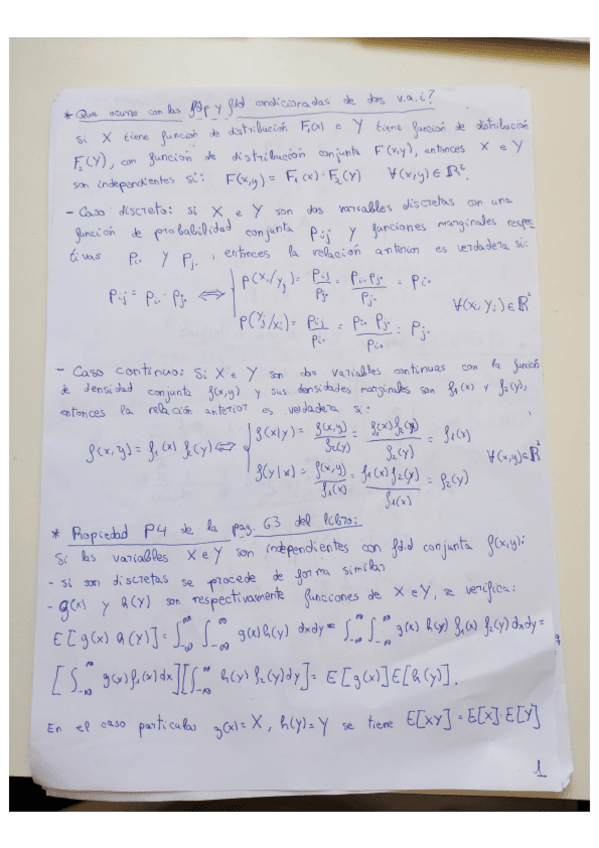 * Que ocurre con las fdp y fdd condicionadas de dos v.a.i?
Si X tiene función de distribución F₁(x) e Y tiene función de distribución
F₂(Y), con función de distribución conjunta F(x,y), entonces X e Y
son independientes si: F(x,y) = F₁(x) · F₂(Y) ∀(x,y) ∈ ℝ².
- Caso discreto: si X e Y son dos variables discretas con una
función de probabilidad conjunta Pij y funciones marginales respec
tivas Pi. y Pj. , entonces la relación anterior es verdadera si:
Pij = Pi. · Pj. ⟺ { P(xi/yj) = Pij/Pj. = Pi. Pj./Pj. = Pi.
P(Yj/xi) = Pij/Pi. = Pi. Pj./Pi. = Pj. ∀(xi, Yi) ∈ ℝ²
- Caso continuo: Si X e Y son dos variables continuas con la función
de densidad conjunta f(x,y) y sus densidades marginales son f₁(x) y f₂(y),
entonces la relación anterior es verdadera si:
f(x,y) = f₁(x) f₂(y) ⟺ { f(x|y) = f(x,y)/f₂(y) = f₁(x) f₂(y)/f₂(y) = f₁(x)
f(y|x) = f(x,y)/f₁(x) = f₁(x) f₂(y)/f₁(x) = f₂(y) ∀(x,y) ∈ ℝ²
* Propiedad P4 de la pag. 63 del libro:
Si las variables X e Y son independientes con f.d.d conjunta f(x,y):
- si son discretas se procede de forma similar
- g(x) y h(Y) son respectivamente funciones de X e Y, se verifica:
E[g(x) h(Y)] = ∫_{-∞}^{∞} ∫_{-∞}^{∞} g(x) h(y) dxdy = ∫_{-∞}^{∞} ∫_{-∞}^{∞} g(x) h(y) f₁(x) f₂(y) dxdy =
[∫_{-∞}^{∞} g(x) f₁(x) dx][∫_{-∞}^{∞} h(y) f₂(y) dy] = E[g(x)] E[h(Y)].
En el caso particular g(x) = X, h(Y) = Y se tiene E[XY] = E[X] · E[Y]
1